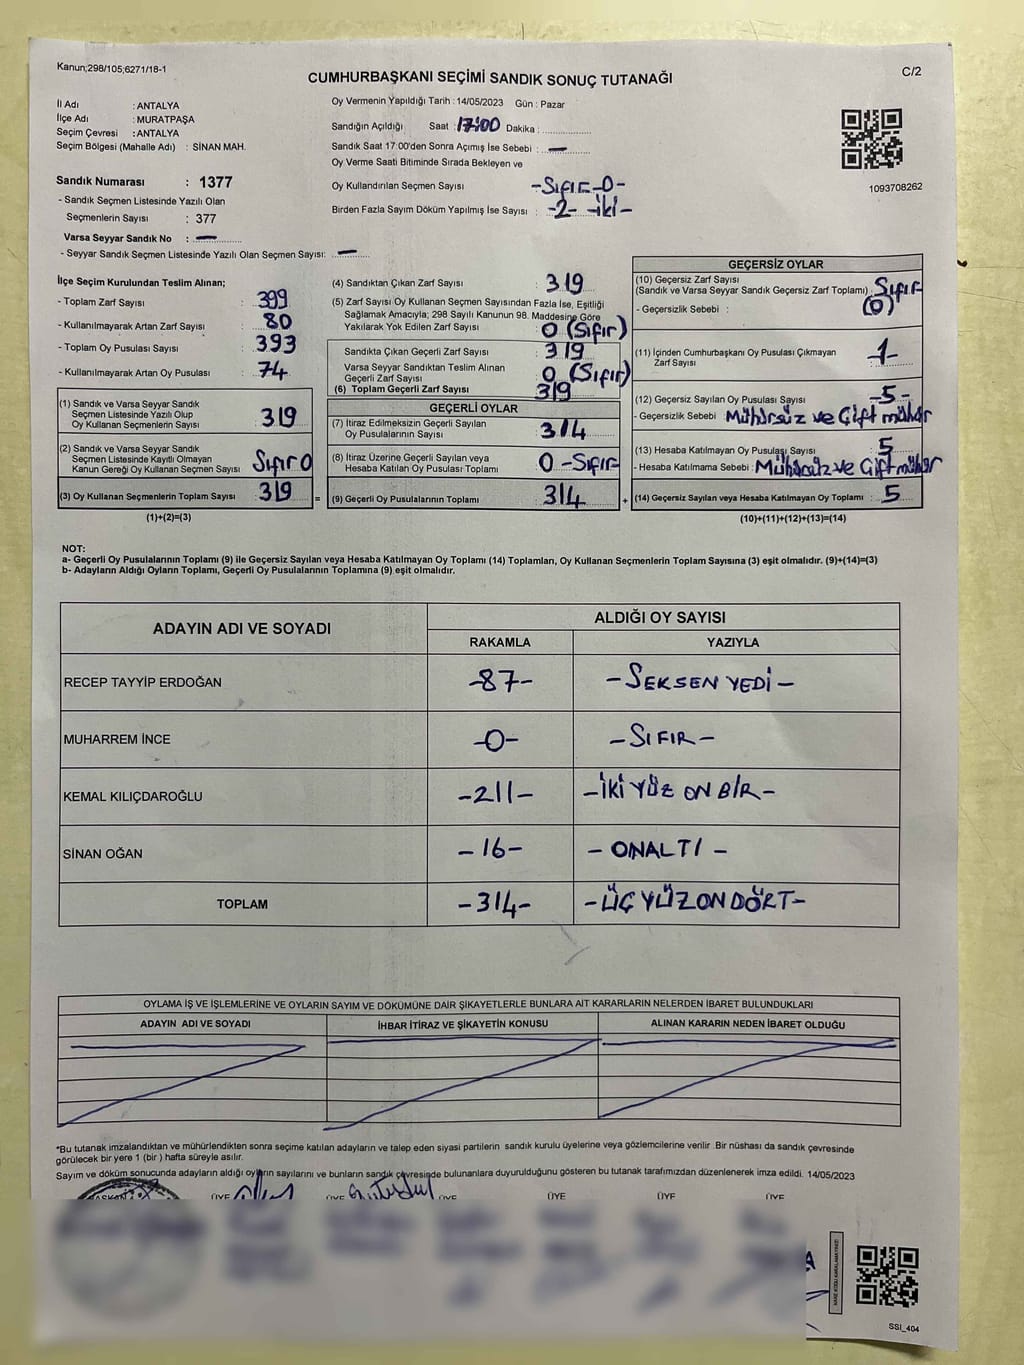 Kanun;298/105;6271/18-1
CUMHURBAŞKANI SEÇİMİ SANDIK SONUÇ TUTANAĞI
C/2
İl Adı : ANTALYA
İlçe Adı : MURATPAŞA
Seçim Çevresi : ANTALYA
Seçim Bölgesi (Mahalle Adı) : SİNAN MAH.
Sandık Numarası : 1377
- Sandık Seçmen Listesinde Yazılı Olan
Seçmenlerin Sayısı : 377
Varsa Seyyar Sandık No : —
- Seyyar Sandık Seçmen Listesinde Yazılı Olan Seçmen Sayısı: —
Oy Vermenin Yapıldığı Tarih : 14/05/2023 Gün : Pazar
Sandığın Açıldığı Saat : 17:00 Dakika :
Sandık Saat 17:00'den Sonra Açımış İse Sebebi : —
Oy Verme Saati Bitiminde Sırada Bekleyen ve
Oy Kullandırılan Seçmen Sayısı -Sıfır-0-
Birden Fazla Sayım Döküm Yapılmış İse Sayısı : -2- -iki-
1093708262
İlçe Seçim Kurulundan Teslim Alınan;
- Toplam Zarf Sayısı : 399
- Kullanılmayarak Artan Zarf Sayısı : 80
- Toplam Oy Pusulası Sayısı : 393
- Kullanılmayarak Artan Oy Pusulası : 74
(1) Sandık ve Varsa Seyyar Sandık
Seçmen Listesinde Yazılı Olup
Oy Kullanan Seçmenlerin Sayısı 319
(2) Sandık ve Varsa Seyyar Sandık
Seçmen Listesinde Kayıtlı Olmayan
Kanun Gereği Oy Kullanan Seçmen Sayısı Sıfır 0
(3) Oy Kullanan Seçmenlerin Toplam Sayısı 319 =
(1)+(2)=(3)
(4) Sandıktan Çıkan Zarf Sayısı : 319
(5) Zarf Sayısı Oy Kullanan Seçmen Sayısından Fazla İse, Eşitliği
Sağlamak Amacıyla; 298 Sayılı Kanunun 98. Maddesine Göre
Yakılarak Yok Edilen Zarf Sayısı : 0 (Sıfır)
Sandıkta Çıkan Geçerli Zarf Sayısı : 319
Varsa Seyyar Sandıktan Teslim Alınan
Geçerli Zarf Sayısı : 0 (Sıfır)
(6) Toplam Geçerli Zarf Sayısı 319
GEÇERLİ OYLAR
(7) İtiraz Edilmeksizin Geçerli Sayılan
Oy Pusulalarının Sayısı : 314
(8) İtiraz Üzerine Geçerli Sayılan veya
Hesaba Katılan Oy Pusulası Toplamı : 0 -Sıfır
(9) Geçerli Oy Pusulalarının Toplamı : 314 +
GEÇERSİZ OYLAR
(10) Geçersiz Zarf Sayısı
(Sandık ve Varsa Seyyar Sandık Geçersiz Zarf Toplamı) : Sıfır
- Geçersizlik Sebebi : (0)
(11) İçinden Cumhurbaşkanı Oy Pusulası Çıkmayan
Zarf Sayısı -1-
(12) Geçersiz Sayılan Oy Pusulası Sayısı -5-
- Geçersizlik Sebebi : Mühürsüz ve Çift mühür
(13) Hesaba Katılmayan Oy Pusulası Sayısı : 5
- Hesaba Katılmama Sebebi : Mühürsüz ve Çift mühür
(14) Geçersiz Sayılan veya Hesaba Katılmayan Oy Toplamı : 5
(10)+(11)+(12)+(13)=(14)
NOT:
a- Geçerli Oy Pusulalarının Toplamı (9) ile Geçersiz Sayılan veya Hesaba Katılmayan Oy Toplamı (14) Toplamları, Oy Kullanan Seçmenlerin Toplam Sayısına (3) eşit olmalıdır. (9)+(14)=(3)
b- Adayların Aldığı Oyların Toplamı, Geçerli Oy Pusulalarının Toplamına (9) eşit olmalıdır.
ADAYIN ADI VE SOYADI
ALDIĞI OY SAYISI
RAKAMLA YAZIYLA
RECEP TAYYİP ERDOĞAN -87- -SEKSEN YEDİ-
MUHARREM İNCE -0- -SIFIR-
KEMAL KILIÇDAROĞLU -211- -İKİ YÜZ ON BİR-
SİNAN OĞAN -16- -ONALTI-
TOPLAM -314- -ÜÇ YÜZ ON DÖRT-
OYLAMA İŞ VE İŞLEMLERİNE VE OYLARIN SAYIM VE DÖKÜMÜNE DAİR ŞİKAYETLERLE BUNLARA AİT KARARLARIN NELERDEN İBARET BULUNDUKLARI
ADAYIN ADI VE SOYADI İHBAR İTİRAZ VE ŞİKAYETİN KONUSU ALINAN KARARIN NEDEN İBARET OLDUĞU
*Bu tutanak imzalandıktan ve mühürlendikten sonra seçime katılan adayların ve talep eden siyasi partilerin sandık kurulu üyelerine veya gözlemcilerine verilir .Bir nüshası da sandık çevresinde
görülecek bir yere 1 (bir ) hafta süreyle asılır.
Sayım ve döküm sonucunda adayların aldığı oyların sayılarını ve bunların sandık çevresinde bulunanlara duyurulduğunu gösteren bu tutanak tarafımızdan düzenlenerek imza edildi. 14/05/2023
BAŞKAN ÜYE ÜYE ÜYE ÜYE ÜYE ÜYE
KARE KODU KARALAMAYINIZ!
SSİ_404